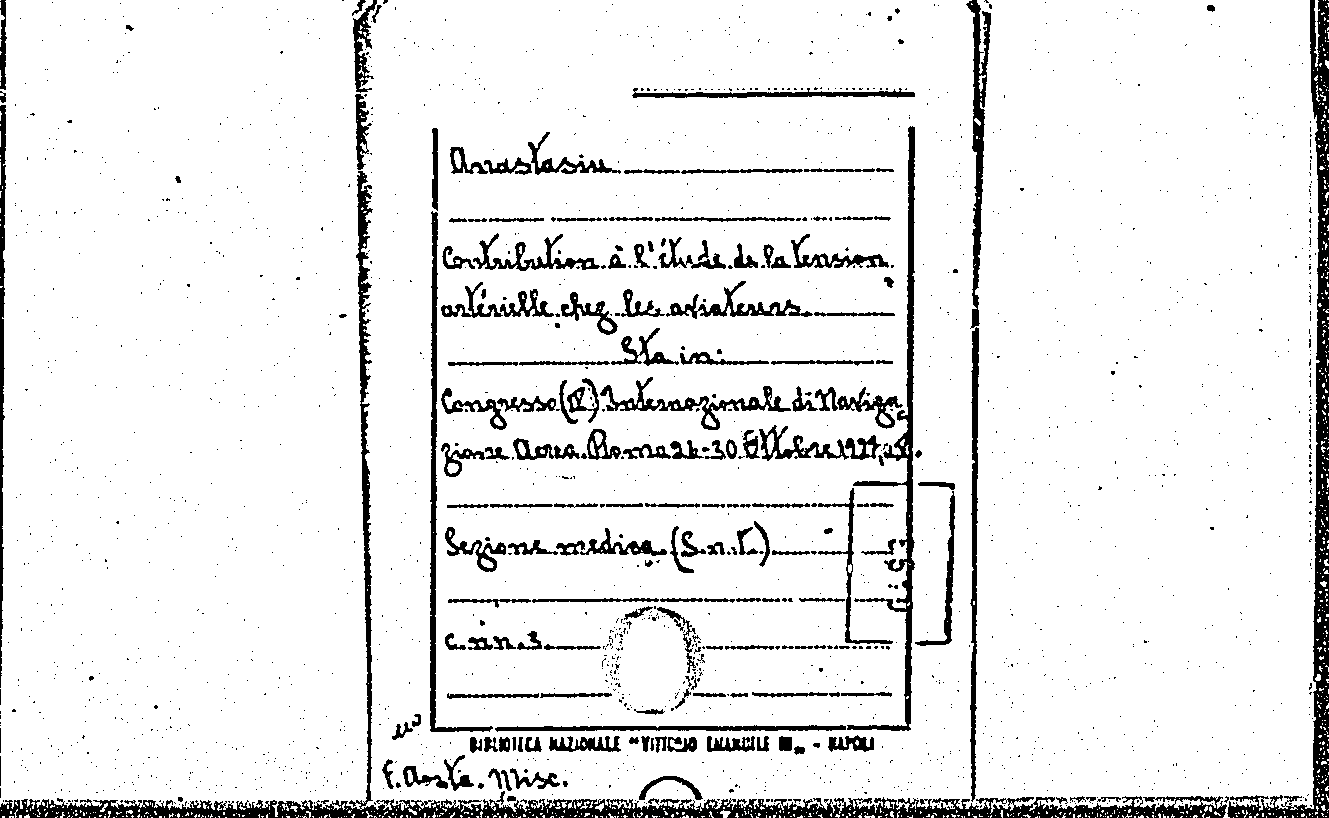 Anastasiu
Contribution à l'étude de la tension
artérielle chez les aviateurs.
Sta in:
Congresso (IV) Internazionale di Naviga
zione Aerea. Roma 24-30 Ottobre 1927,
Sezione medica. (S.n.T.)
c. nn. 3.
BIBLIOTECA NAZIONALE "VITTORIO EMANUELE III" - NAPOLI
F. Aosta. Misc.